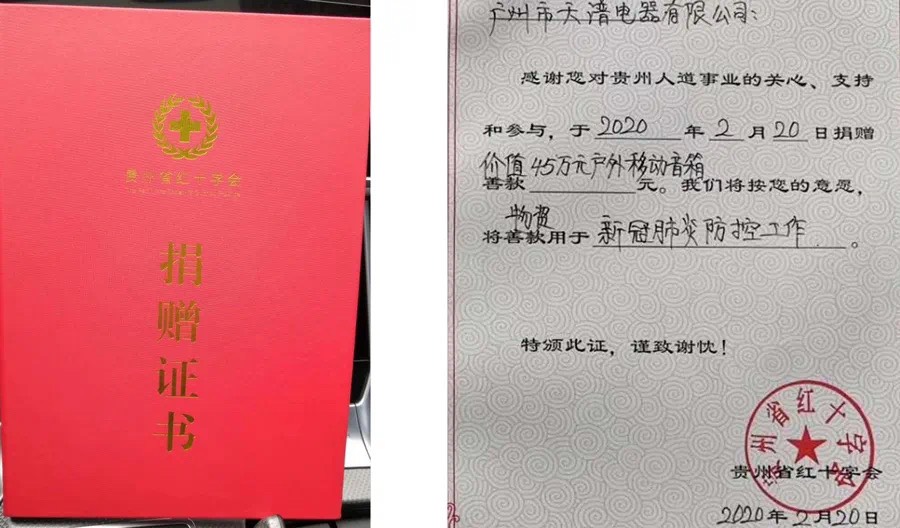 贵州省红十字会
捐
赠
证
书
广州市天谱电器有限公司：
感谢您对贵州人道事业的关心、支持
和参与，于2020年2月20日捐赠
价值45万元户外移动音箱
善款元。我们将按您的意愿，
物资
将善款用于新冠肺炎防控工作。
特颁此证，谨致谢忱！
贵州省红十字会
贵州省红十字会
2020年2月20日